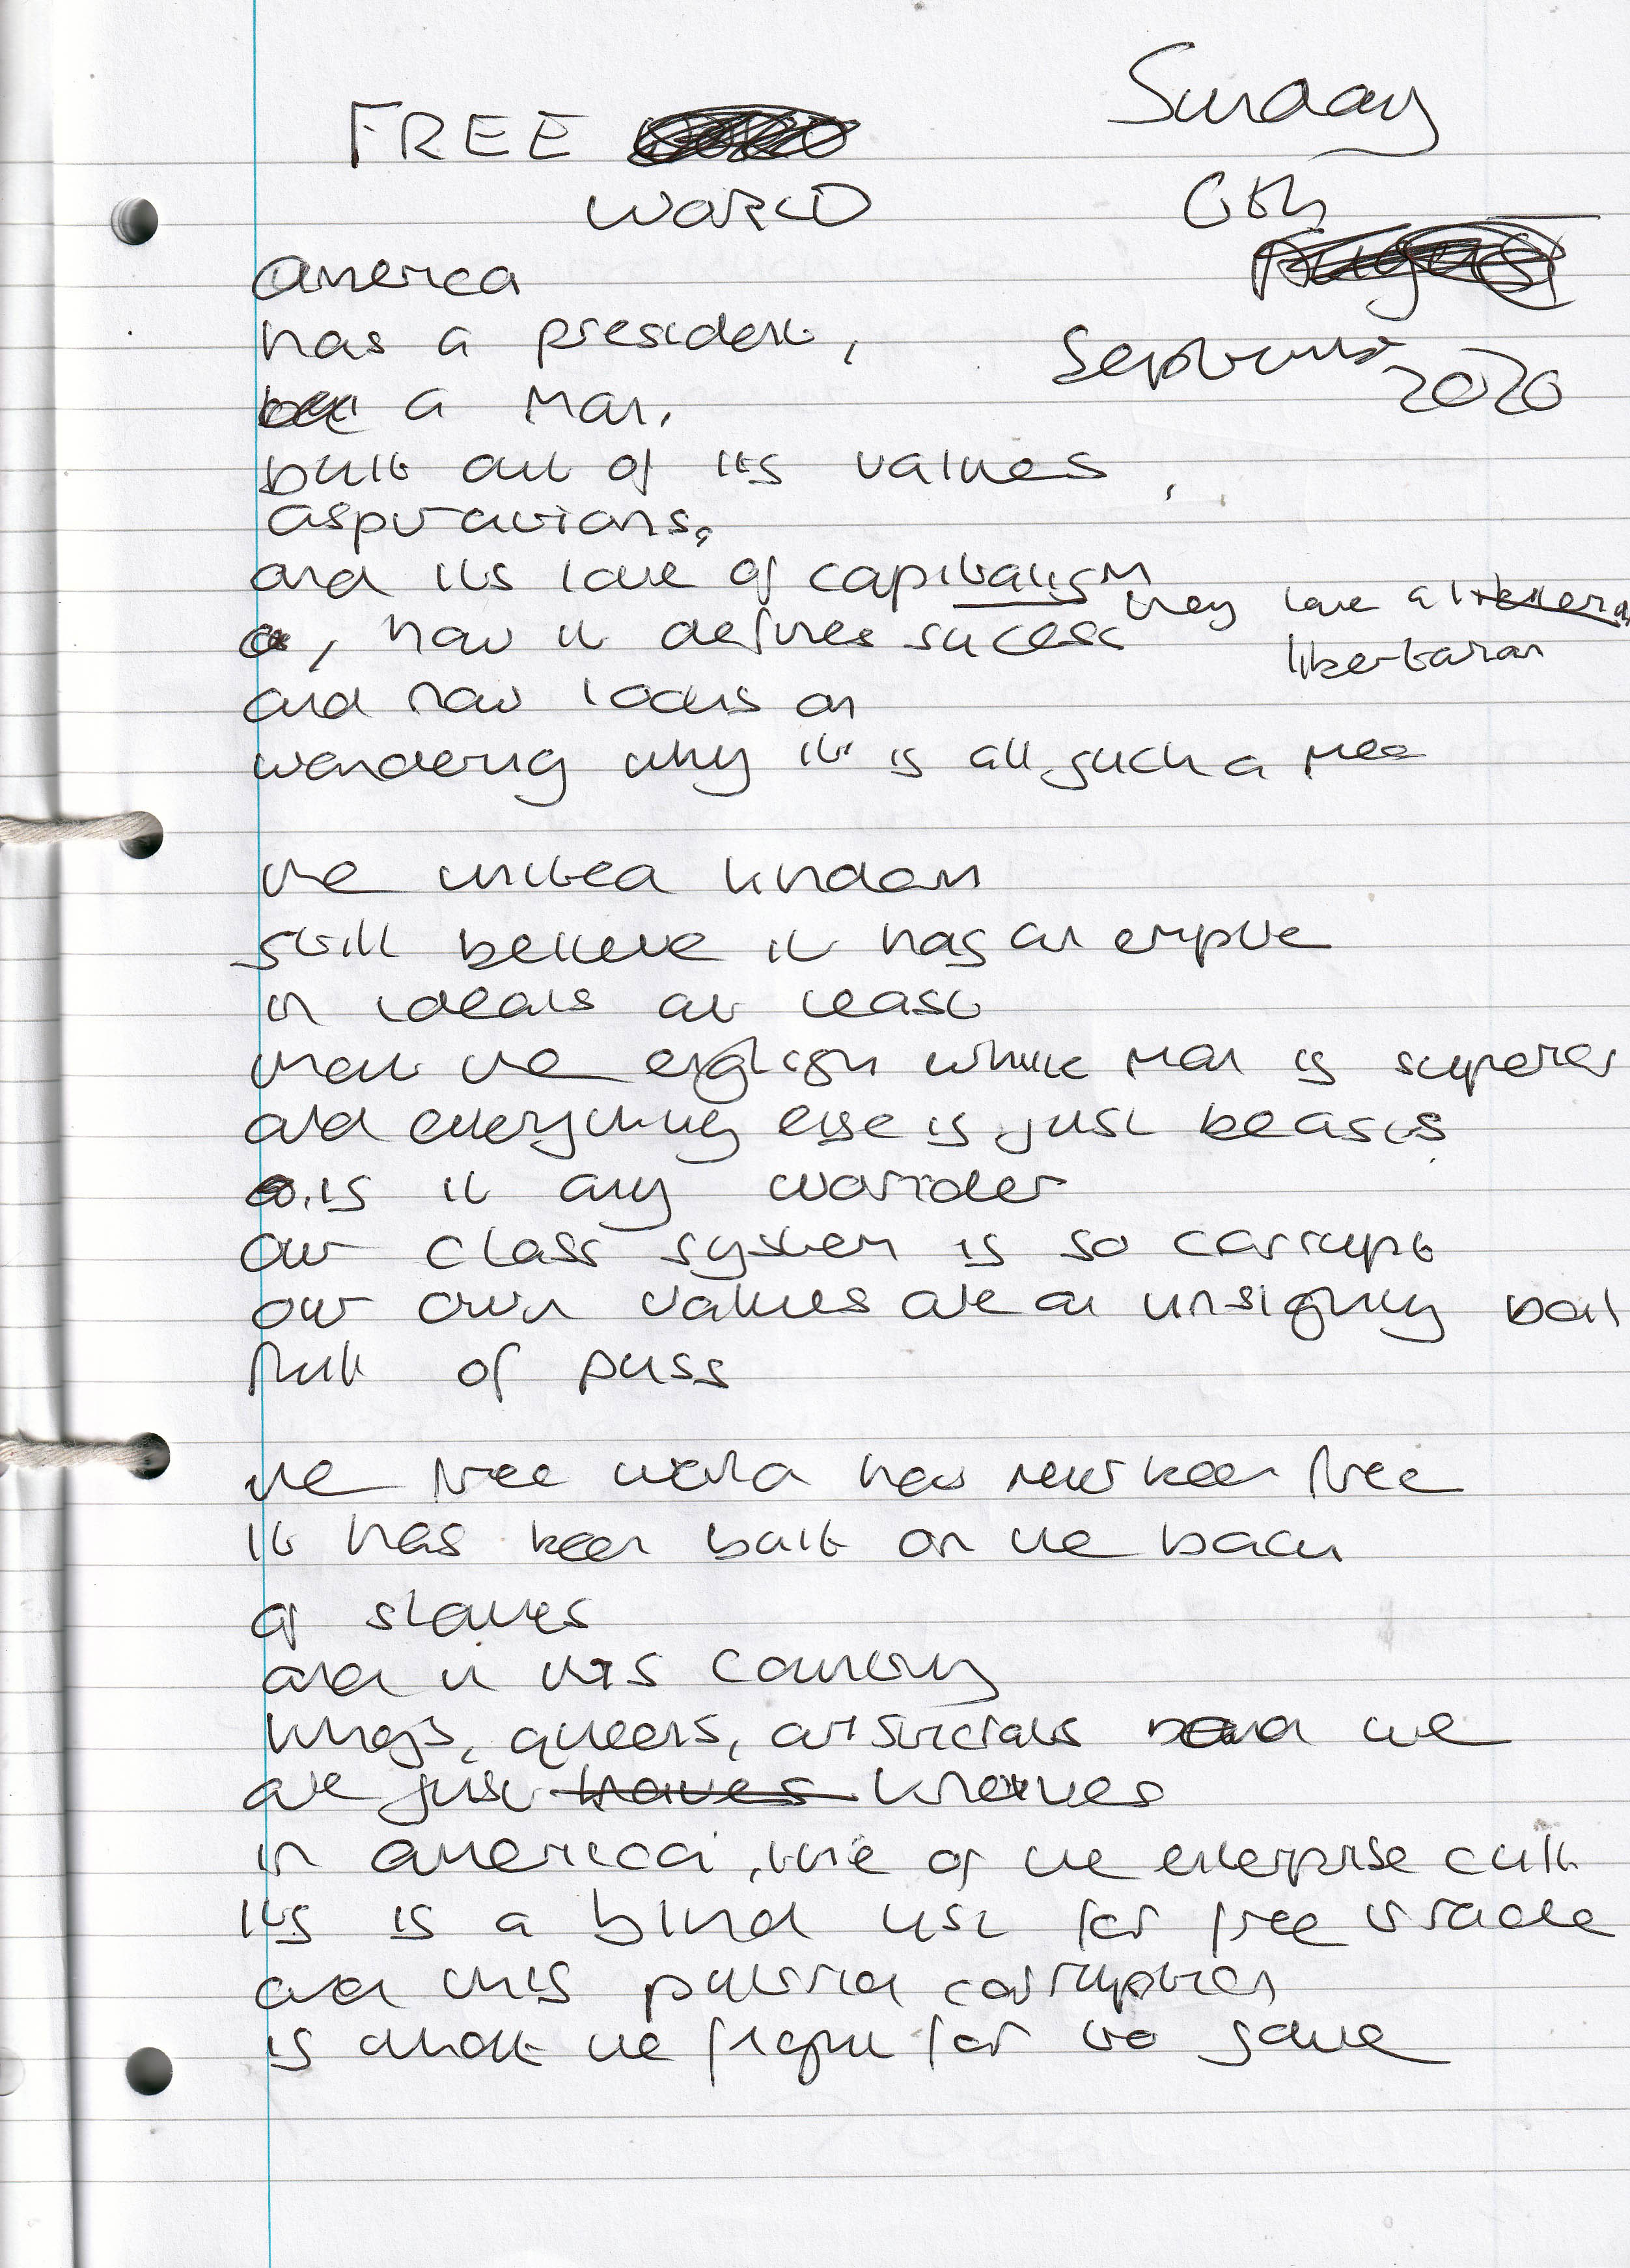 FREE
WORLD
Sunday
6th
September
2020
america
has a president,
a man,
built out of its values,
aspirations,
and its love of capitalism
, how it defines sucess
they love a
libertarian
and now looks on
wondering why it is all such a mess
the united kindom
still believe it has an empire
in ideals at least
that the english white man is superer
and everything else is just beasts
is it any wonder
our class system is so corrupt
our own values are an unsighty boil
full of puss
the free world has never been free
it has been built on the back
of slaves
and in this country
kings, queens, and we
are just knaves
in america, the of the enterprise cult
its is a blind lust for free trade
and this putrid corruption
is what we fight for to save